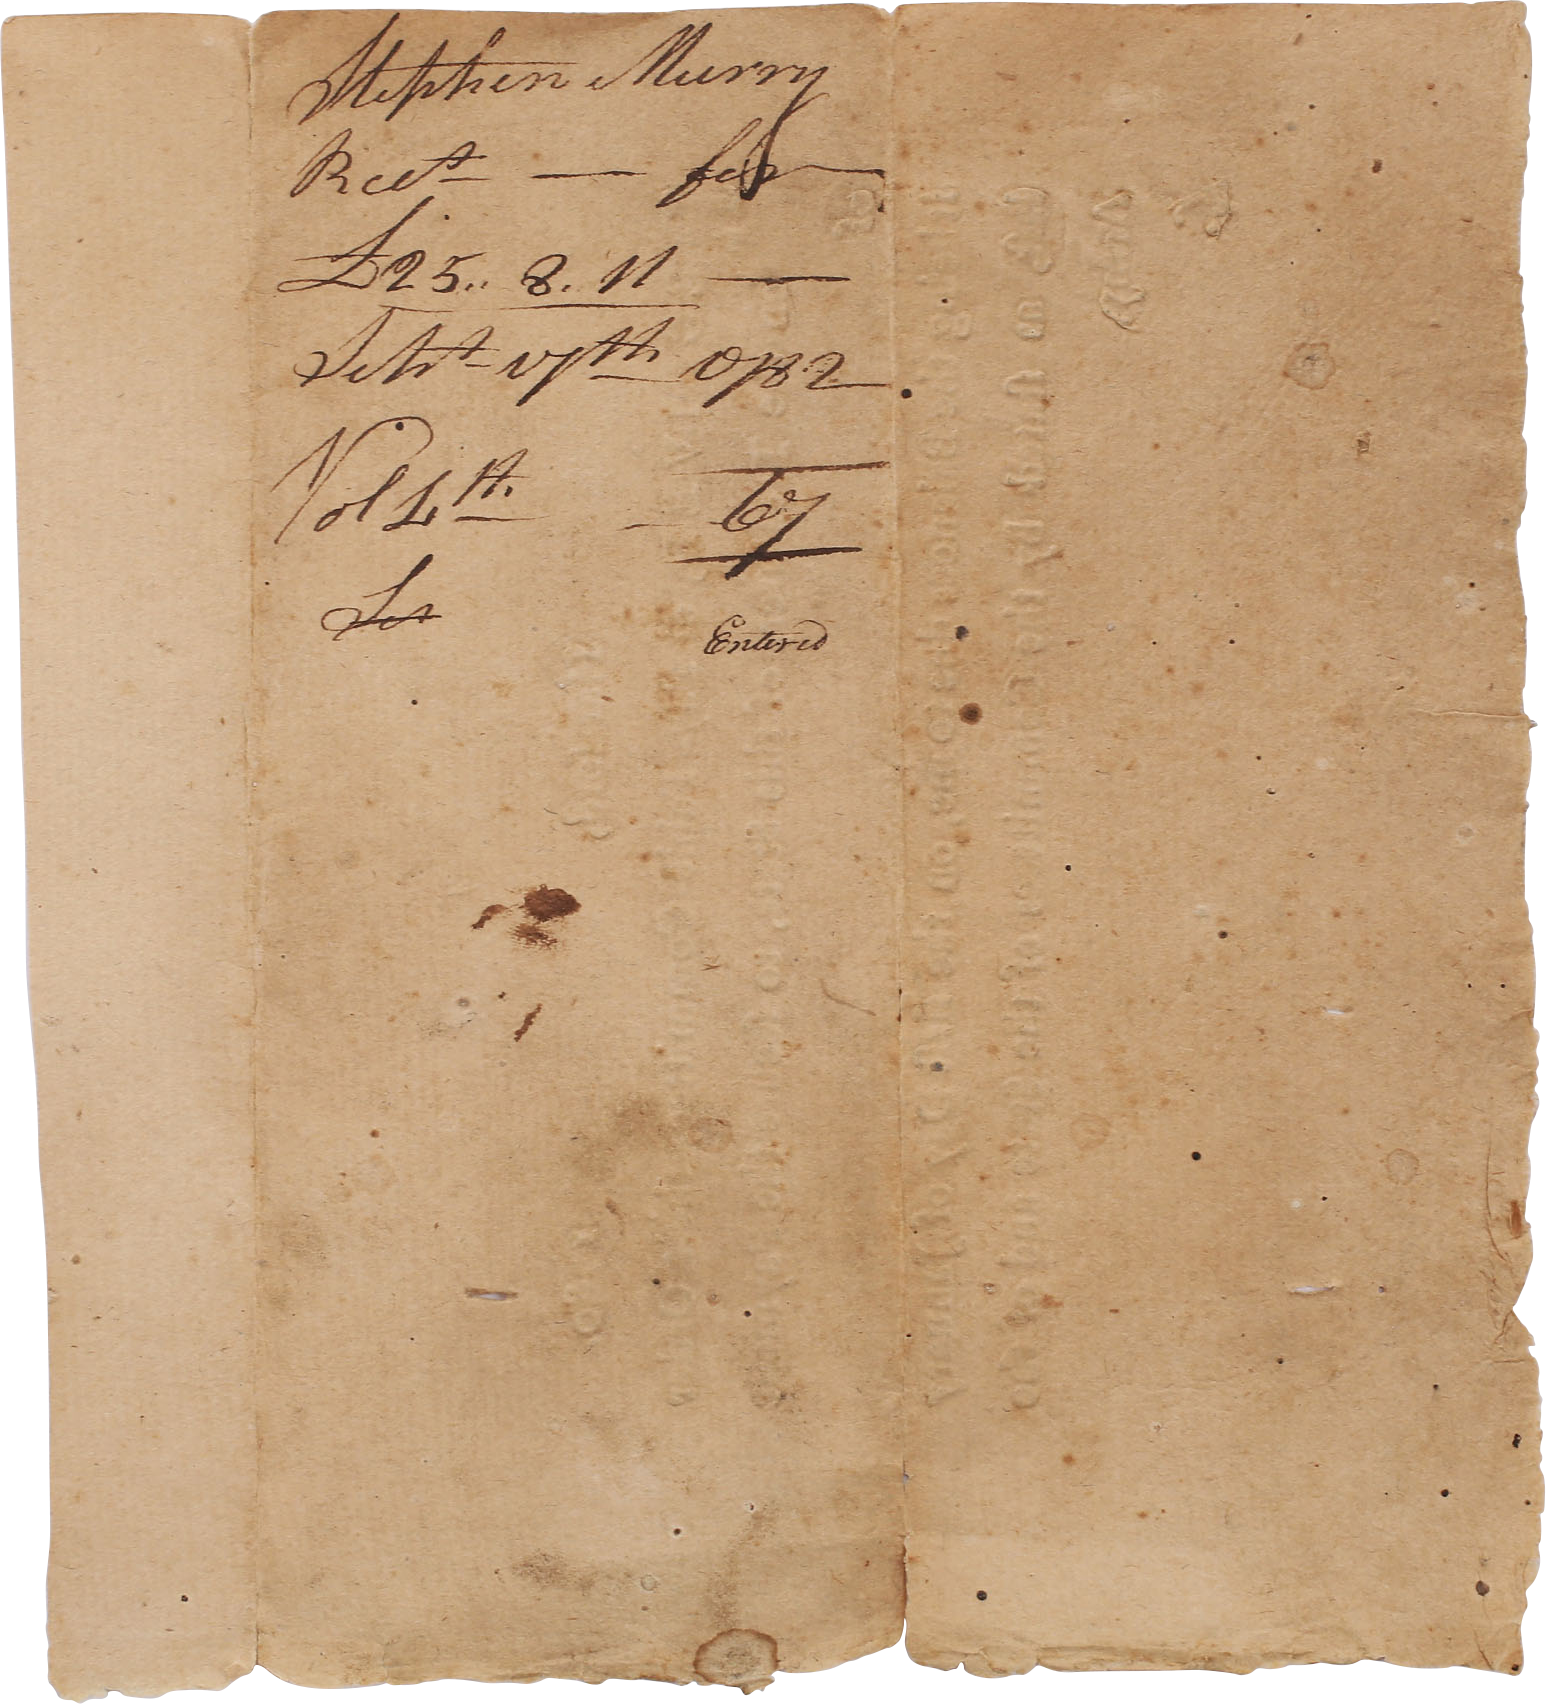 Stephen Murry
Rcet — for
£25.. 8. 11 —
Sebr 17th 1782
Vol 4th — 67
Entered